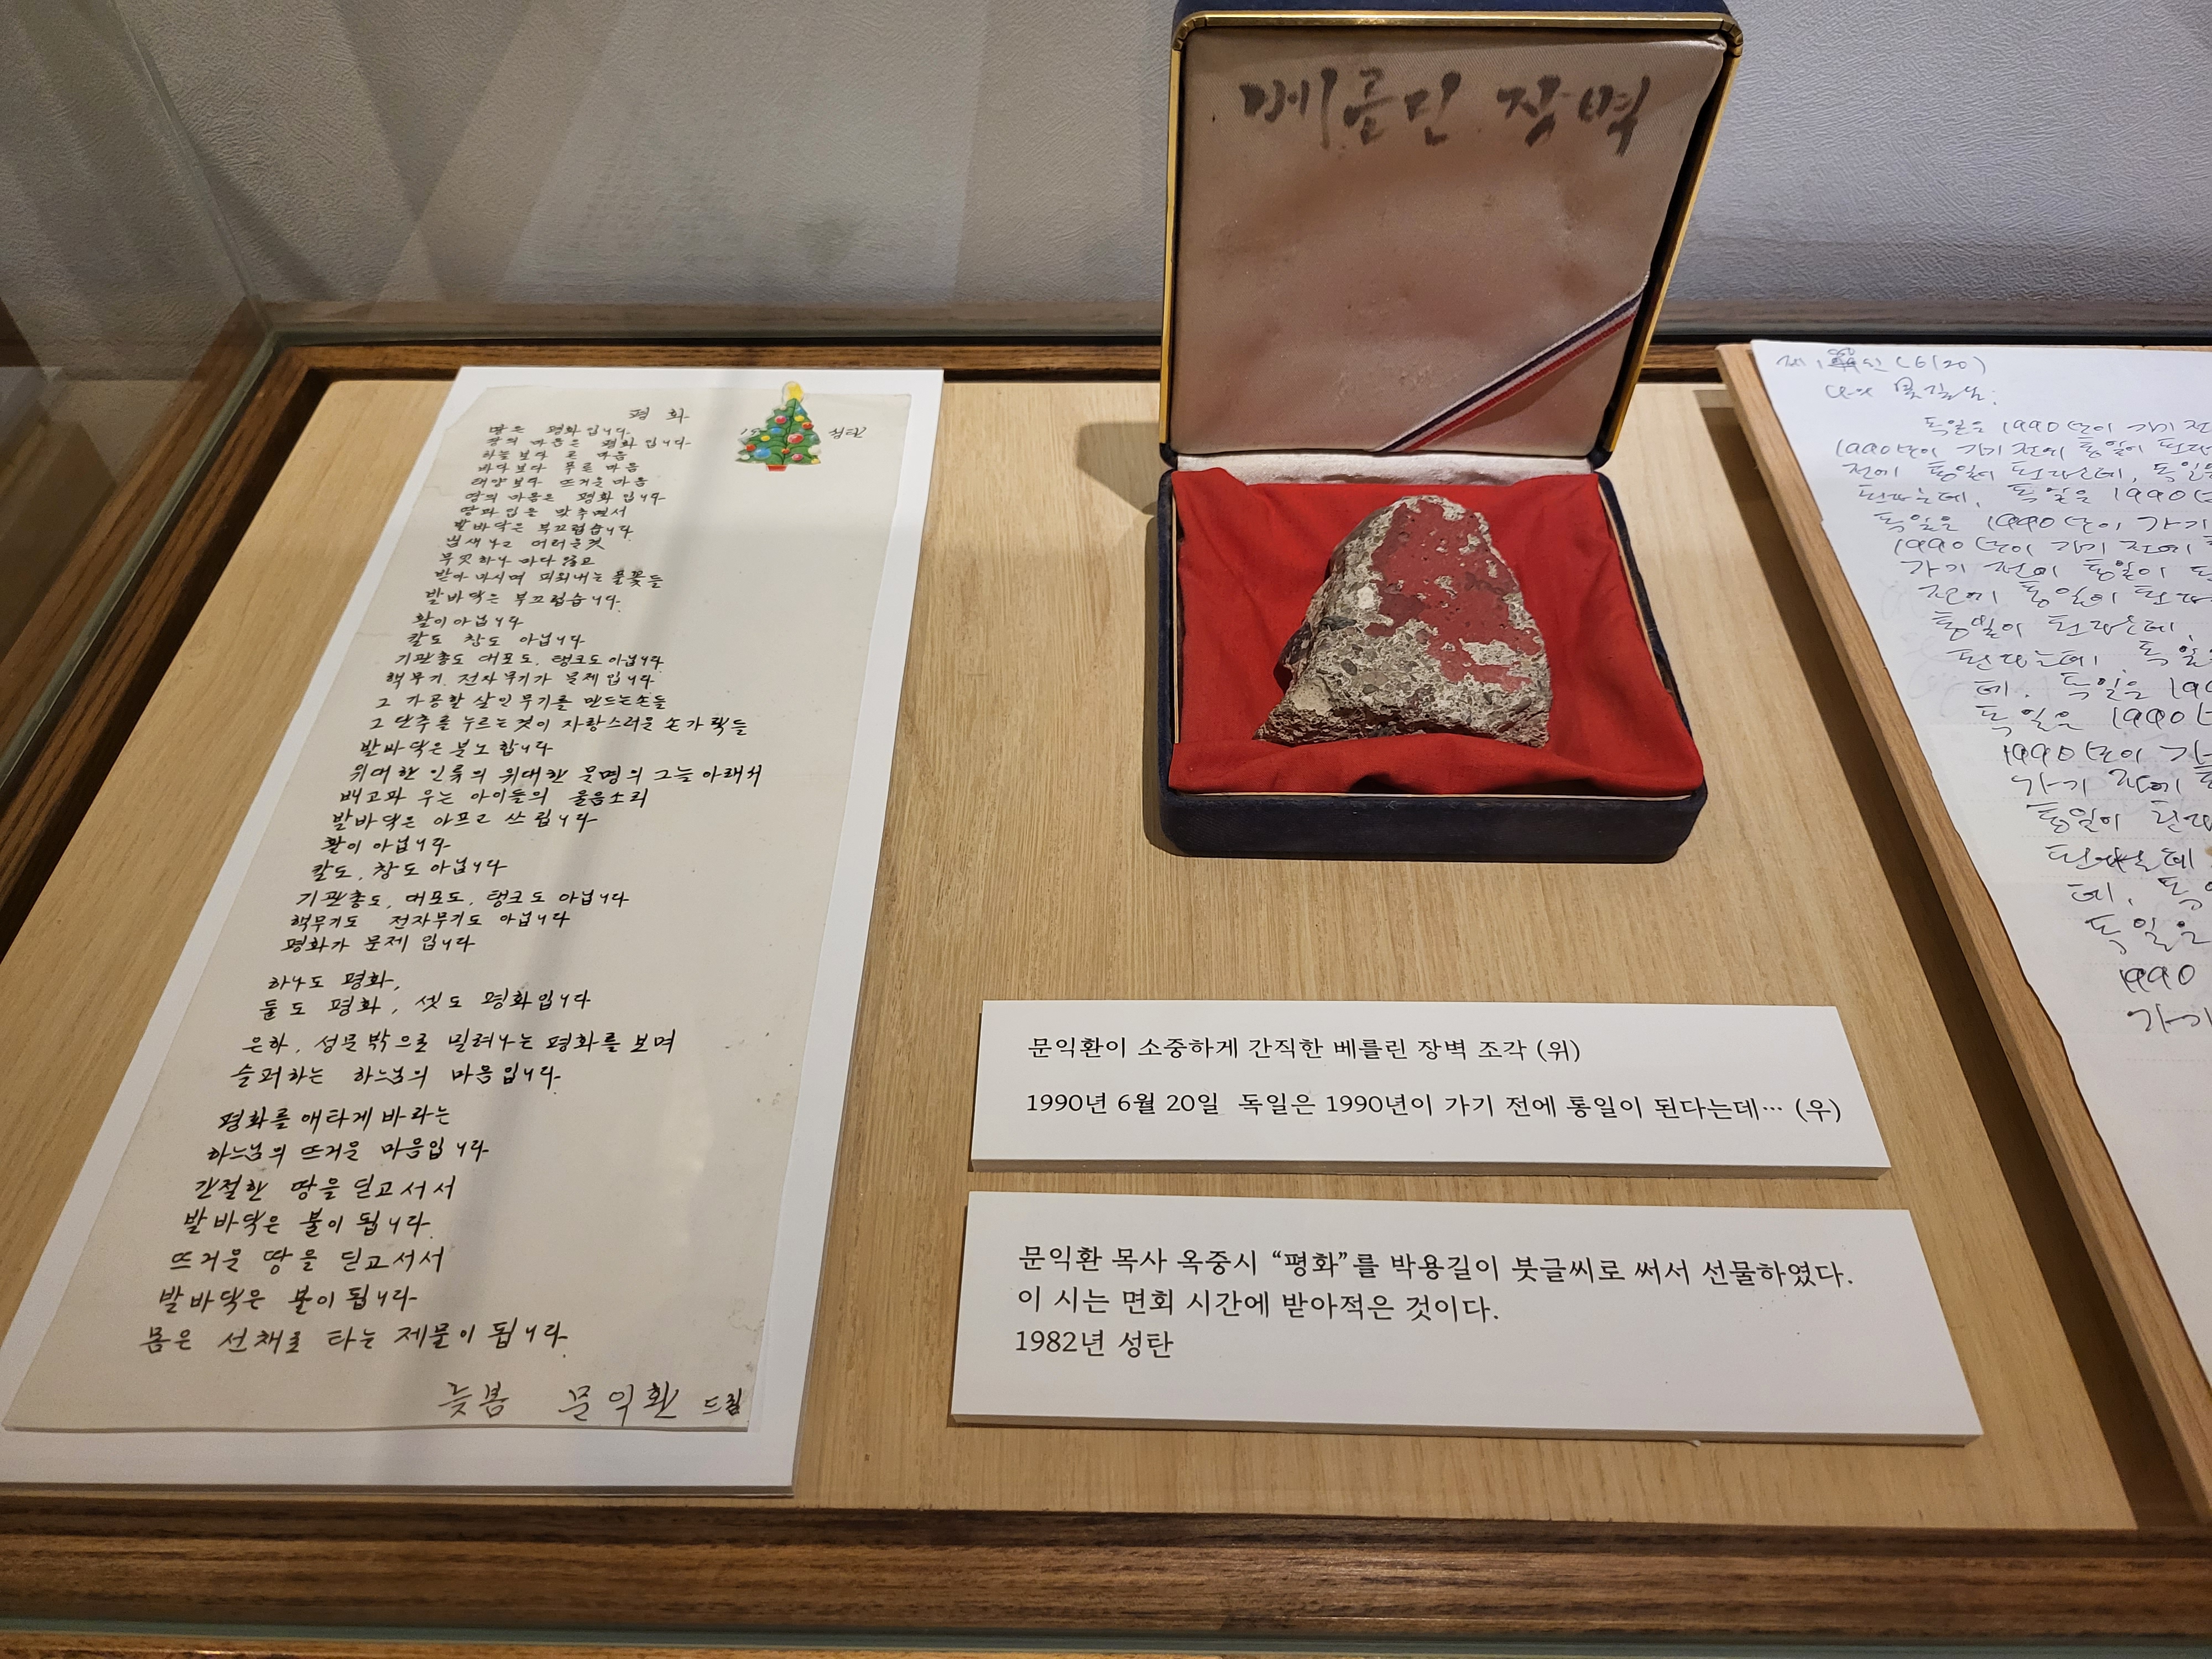 평화
땅은 평화입니다
땅의 마음은 평화입니다
하늘보다 푠 마음
바다보다 푸른 마음
태양보다 뜨거운 마음
땅의 마음은 평화입니다
땅과 입을 맞추면서
발바닥은 부끄럽습니다
냄새나고 더러운것
무엇하나 마다 않고
받아 마시며 피워내는 풀꽃들
발바닥은 부끄럽습니다
활이 아닙니다
칼도 창도 아닙니다
기관총도 대포도, 탱크도 아닙니다
핵무기, 전자무기가 문제입니다
그 가공할 살인무기를 만드는 손들
그 단추를 누르는 것이 자랑스러운 손가락들
발바닥은 분노합니다
위대한 인류의 위대한 문명의 그늘 아래서
배고파 우는 아이들의 울음소리
발바닥은 아프고 쓰립니다
활이 아닙니다
칼도, 창도 아닙니다
기관총도, 대포도, 탱크도 아닙니다
핵무기도 전자무기도 아닙니다
평화가 문제입니다
하나도 평화,
둘도 평화, 셋도 평화입니다
은하, 성문 밖으로 밀려나는 평화를 보며
슬퍼하는 하느님의 마음입니다.
평화를 애타게 바라는
하느님의 뜨거운 마음입니다
간절한 땅을 딛고 서서
발바닥은 불이 됩니다.
뜨거운 땅을 딛고 서서
발바닥은 불이 됩니다
몸은 선채로 타는 제물이 됩니다.
늦봄 문익환 드림
성탄
베를린 장벽
문익환이 소중하게 간직한 베를린 장벽 조각 (위)
1990년 6월 20일 독일은 1990년이 가기 전에 통일이 된다는데… (우)
문익환 목사 옥중시 “평화”를 박용길이 붓글씨로 써서 선물하였다.
이 시는 면회 시간에 받아적은 것이다.
1982년 성탄
(6/20)
독일은 1990년이 가기 전
1990년이 가기 전에 통일이 된다
전에 통일이 된다는데, 독일은
된다는데, 독일은 1990년
독일은 1990년이 가기
1990년이 가기 전에
가기 전에 통일이
전에 통일이 된다
통일이 된다는데,
된다는데, 독일
데, 독일은 199
독일은 1990년
1990년이 가
가기 전에
통일이 된다
된다는데
데, 독
독일은
1990
가기